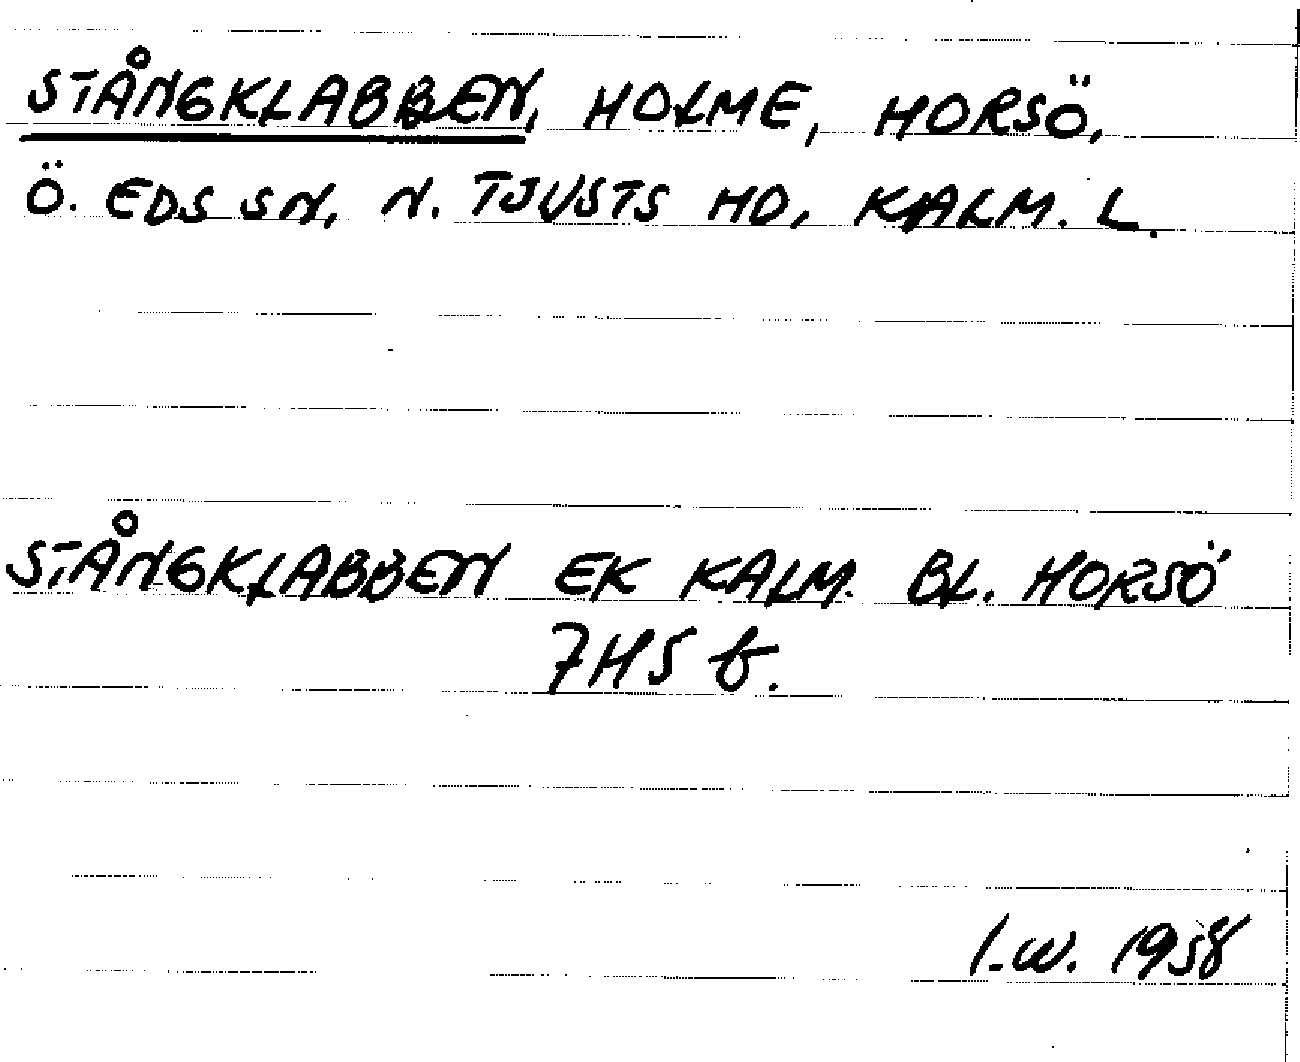 STÅNGKLABBEN, HOLME, HORSÖ,
Ö. EDS SN, N. TJUSTS HD, KALM. L.
STÅNGKLABBEN EK KALM. BL. HORSÖ
7H5 b.
I.W. 1958